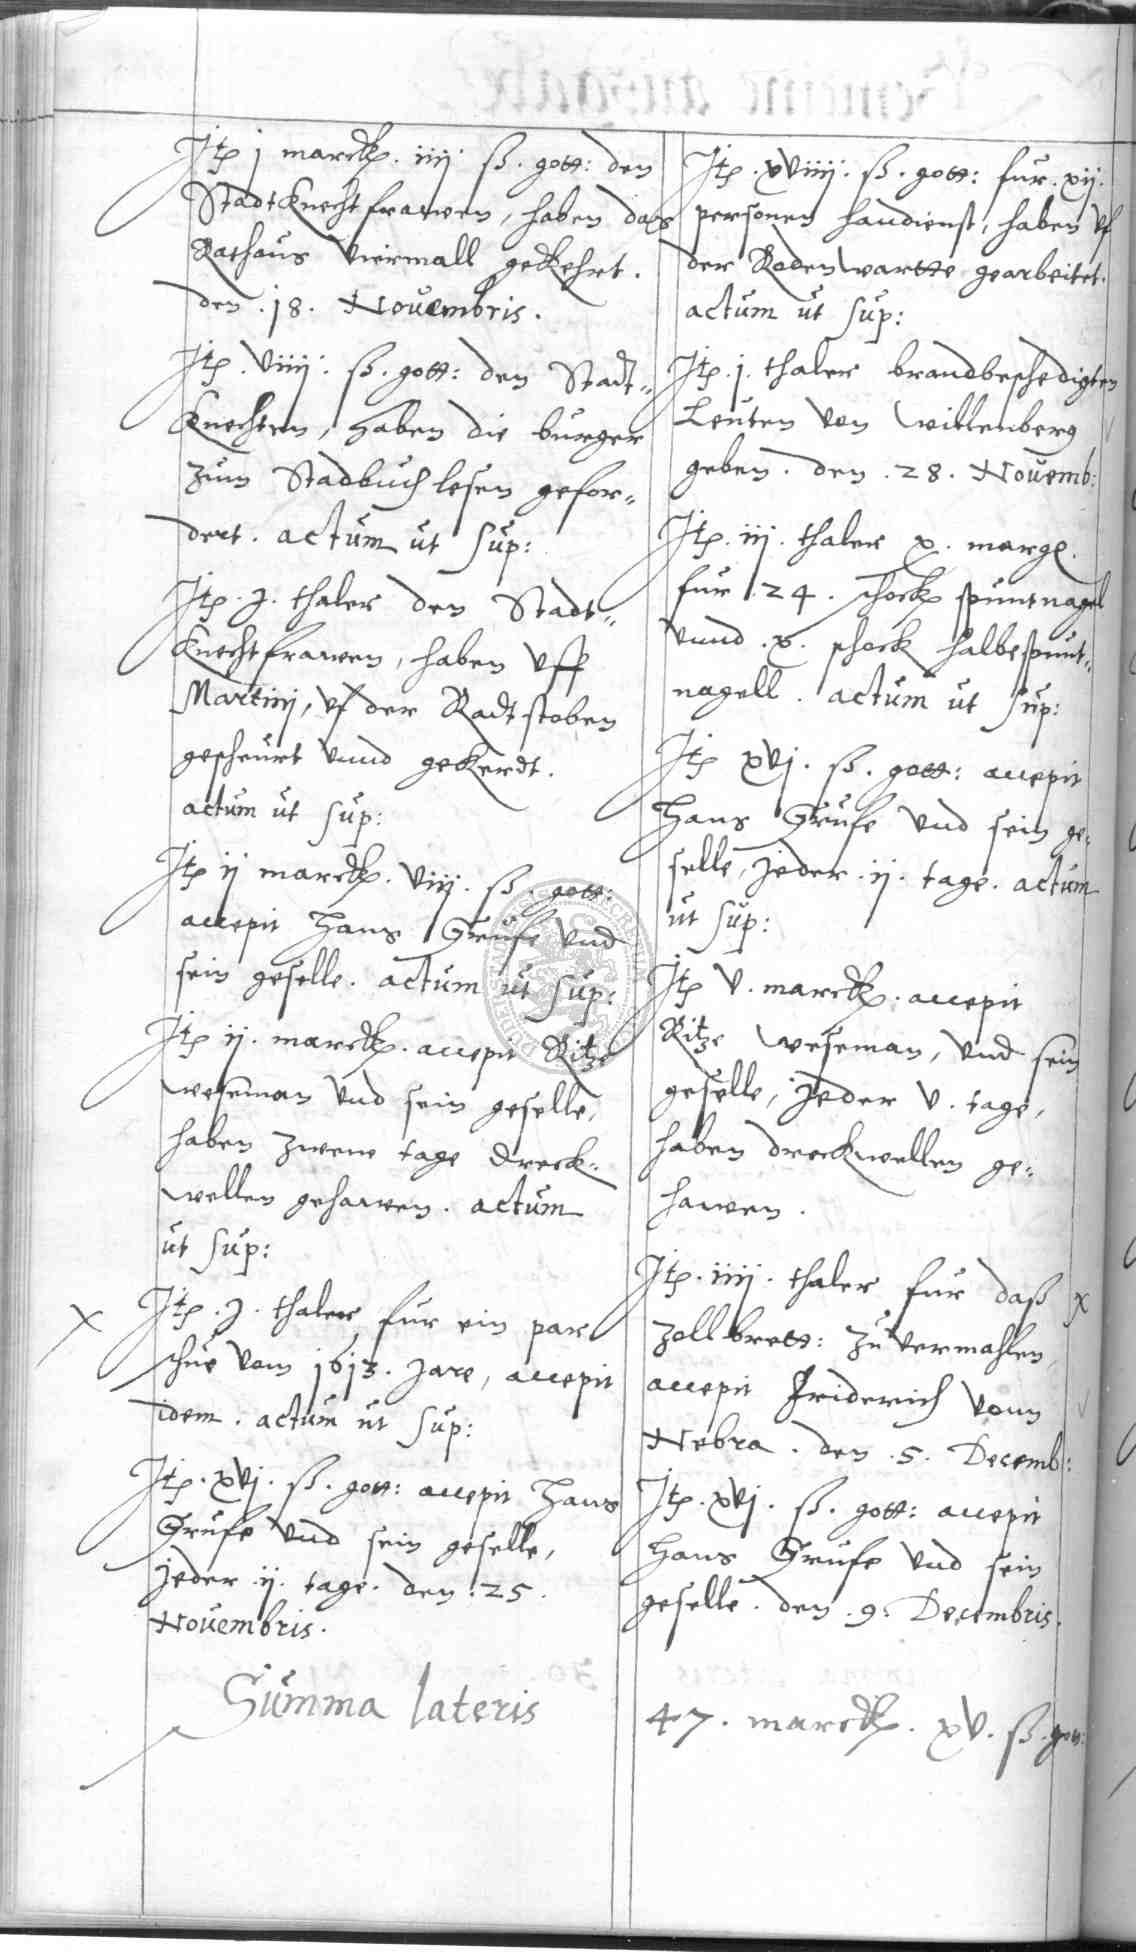 Itz j marck. iiij ß. gott: den
StadtKnecht frawen, haben das
Rathaus viermall gekehrt.
den .18. Novembris.
Itz. viiij. ß. gott: den Stadt-
Knechten, haben die burger
zum Stadbuch lesen gefor-
dert. actum ut sup:
Itz. j. thaler den Stadt-
Knecht frawen, haben vff
Martinj, vf der Radtstoben
gescheurt vnnd gekerdt.
actum ut sup:
Itz ij marck. viij. ß. gott:
accepit Hans Grufe vnd
sein geselle. actum ut sup:
Itz ij. marck. accepit Ritze
weseman vnd sein geselle,
haben zwene tage dreck-
wellen gehawen. actum
ut sup:
Itz. j. thaler fur ein par
schue vom 1613. Jare, accepit
idem. actum ut sup:
Itz. xvj. ß. gott: accepit Hans
Grufe vnd sein geselle,
jeder .ij. tage. den .25.
Novembris.
Summa lateris
Itz. xviiij. ß. gott: fur. xij.
personen handienst, haben vf
der Roden wartte gearbeitet.
actum ut sup:
Itz. j. thaler brandbeschedigten
Leuten von willenberg
geben. den .28. Novemb:
Itz. iij. thaler x. marge.
fur .24. schock spuntnagel
vnnd .x. schock halbespunt-
nagell. actum ut sup:
Itz xvj. ß. gott: accepit
Hans Grufe vnd sein ge-
selle, jeder .ij. tage. actum
ut sup:
Itz v. marck. accepit
Ritze weseman, vnd sein
geselle, jeder v. tage,
haben dreckwellen ge-
hawen.
Itz. iiij. thaler fur daß
zollbrett: zu vermahlen,
accepit Friderich vonn
Nebra. den .5. Decemb:
Itz. xvj. ß. gott: accepit
Hans Grufe vnd sein
geselle. den .9. Decembris.
47. marck. xv. ß. gott: